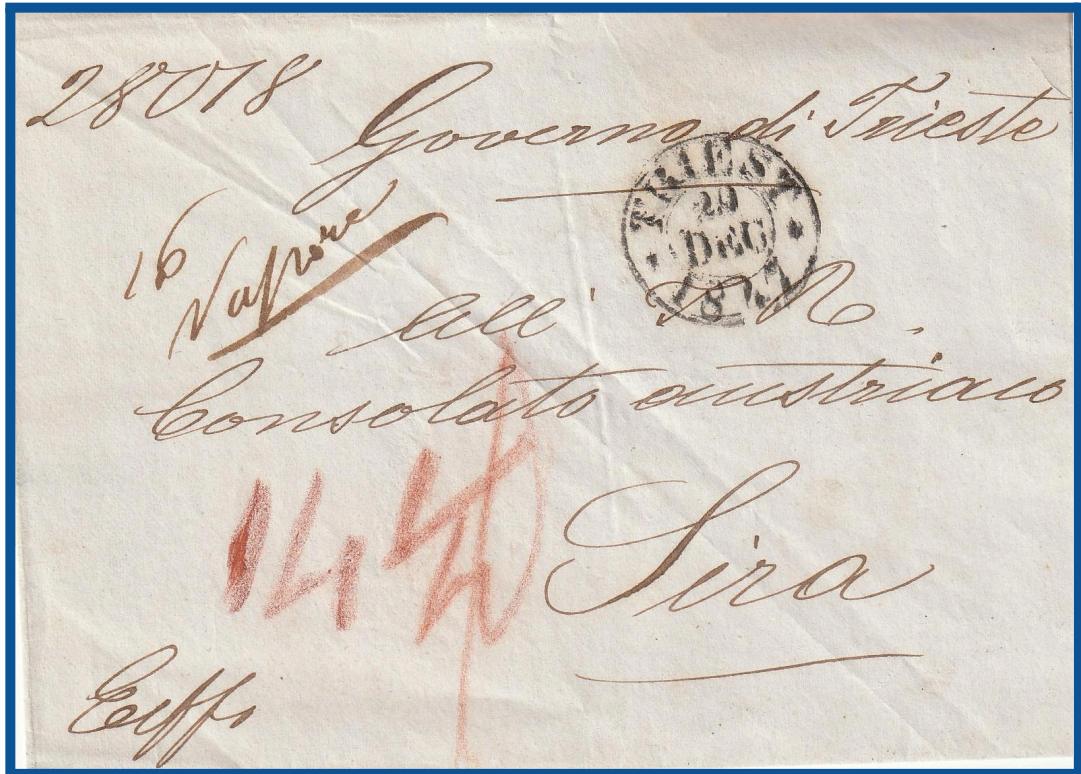 28018
Governo di Trieste
TRIEST
29
DEC
1847
16
Vapore
All' I. R.
Consolato austriaco
Sira